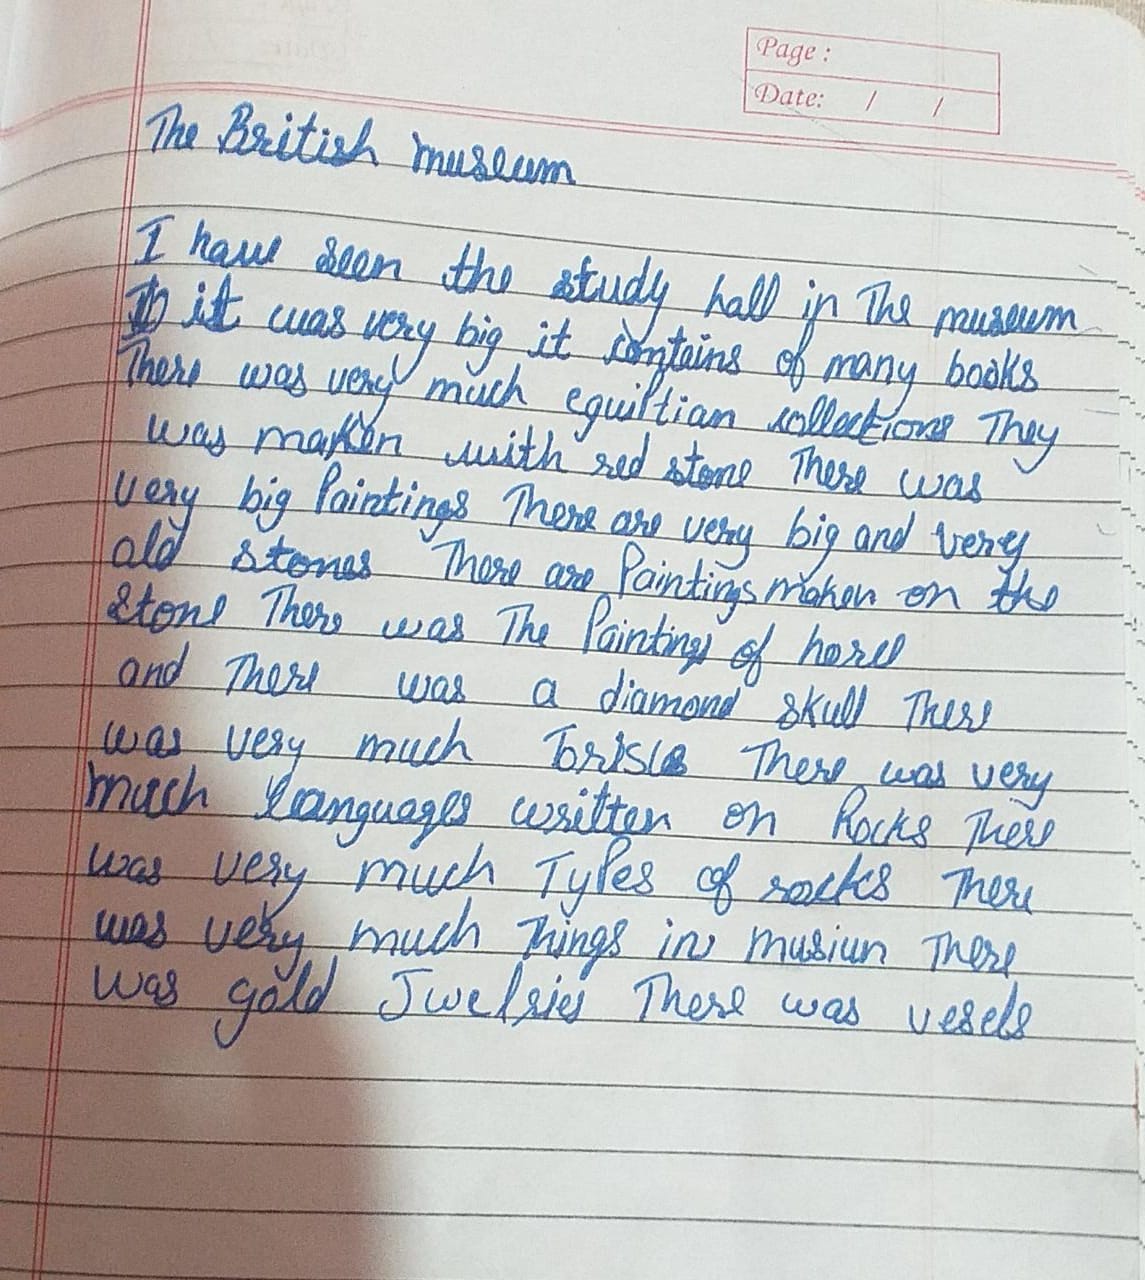 Page :
Date: / /
The British museum
I have seen the study hall in The museum
it was very big it contains of many books
There was very much eguiltian collections They
was maken with red stone There was
very big Paintings There are very big and very
old stones There are Paintings maken on the
stone There was The Paintings of horse
and There was a diamond skull There
was very much There was very
much languages written on Rocks There
was very much Types of rocks There
was very much Things in musiun There
was gold Jwelries There was vesels